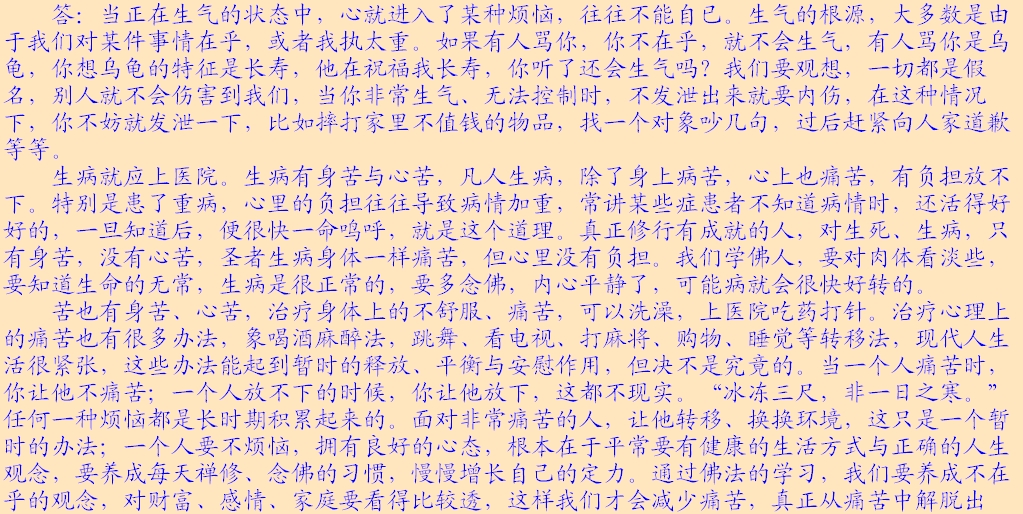 答：当正在生气的状态中，心就进入了某种烦恼，往往不能自已。生气的根源，大多数是由
于我们对某件事情在乎，或者我执太重。如果有人骂你，你不在乎，就不会生气，有人骂你是乌
龟，你想乌龟的特征是长寿，他在祝福我长寿，你听了还会生气吗？我们要观想，一切都是假
名，别人就不会伤害到我们，当你非常生气、无法控制时，不发泄出来就要内伤，在这种情况
下，你不妨就发泄一下，比如摔打家里不值钱的物品，找一个对象吵几句，过后赶紧向人家道歉
等等。
生病就应上医院。生病有身苦与心苦，凡人生病，除了身上病苦，心上也痛苦，有负担放不
下。特别是患了重病，心里的负担往往导致病情加重，常讲某些症患者不知道病情时，还活得好
好的，一旦知道后，便很快一命呜呼，就是这个道理。真正修行有成就的人，对生死、生病，只
有身苦，没有心苦，圣者生病身体一样痛苦，但心里没有负担。我们学佛人，要对肉体看淡些，
要知道生命的无常，生病是很正常的，要多念佛，内心平静了，可能病就会很快好转的。
苦也有身苦、心苦，治疗身体上的不舒服、痛苦，可以洗澡，上医院吃药打针。治疗心理上
的痛苦也有很多办法，象喝酒麻醉法，跳舞、看电视、打麻将、购物、睡觉等转移法，现代人生
活很紧张，这些办法能起到暂时的释放、平衡与安慰作用，但决不是究竟的。当一个人痛苦时，
你让他不痛苦；一个人放不下的时候，你让他放下，这都不现实。“冰冻三尺，非一日之寒。”
任何一种烦恼都是长时期积累起来的。面对非常痛苦的人，让他转移、换换环境，这只是一个暂
时的办法；一个人要不烦恼，拥有良好的心态，根本在于平常要有健康的生活方式与正确的人生
观念，要养成每天禅修、念佛的习惯，慢慢增长自己的定力。通过佛法的学习，我们要养成不在
乎的观念，对财富、感情、家庭要看得比较透，这样我们才会减少痛苦，真正从痛苦中解脱出